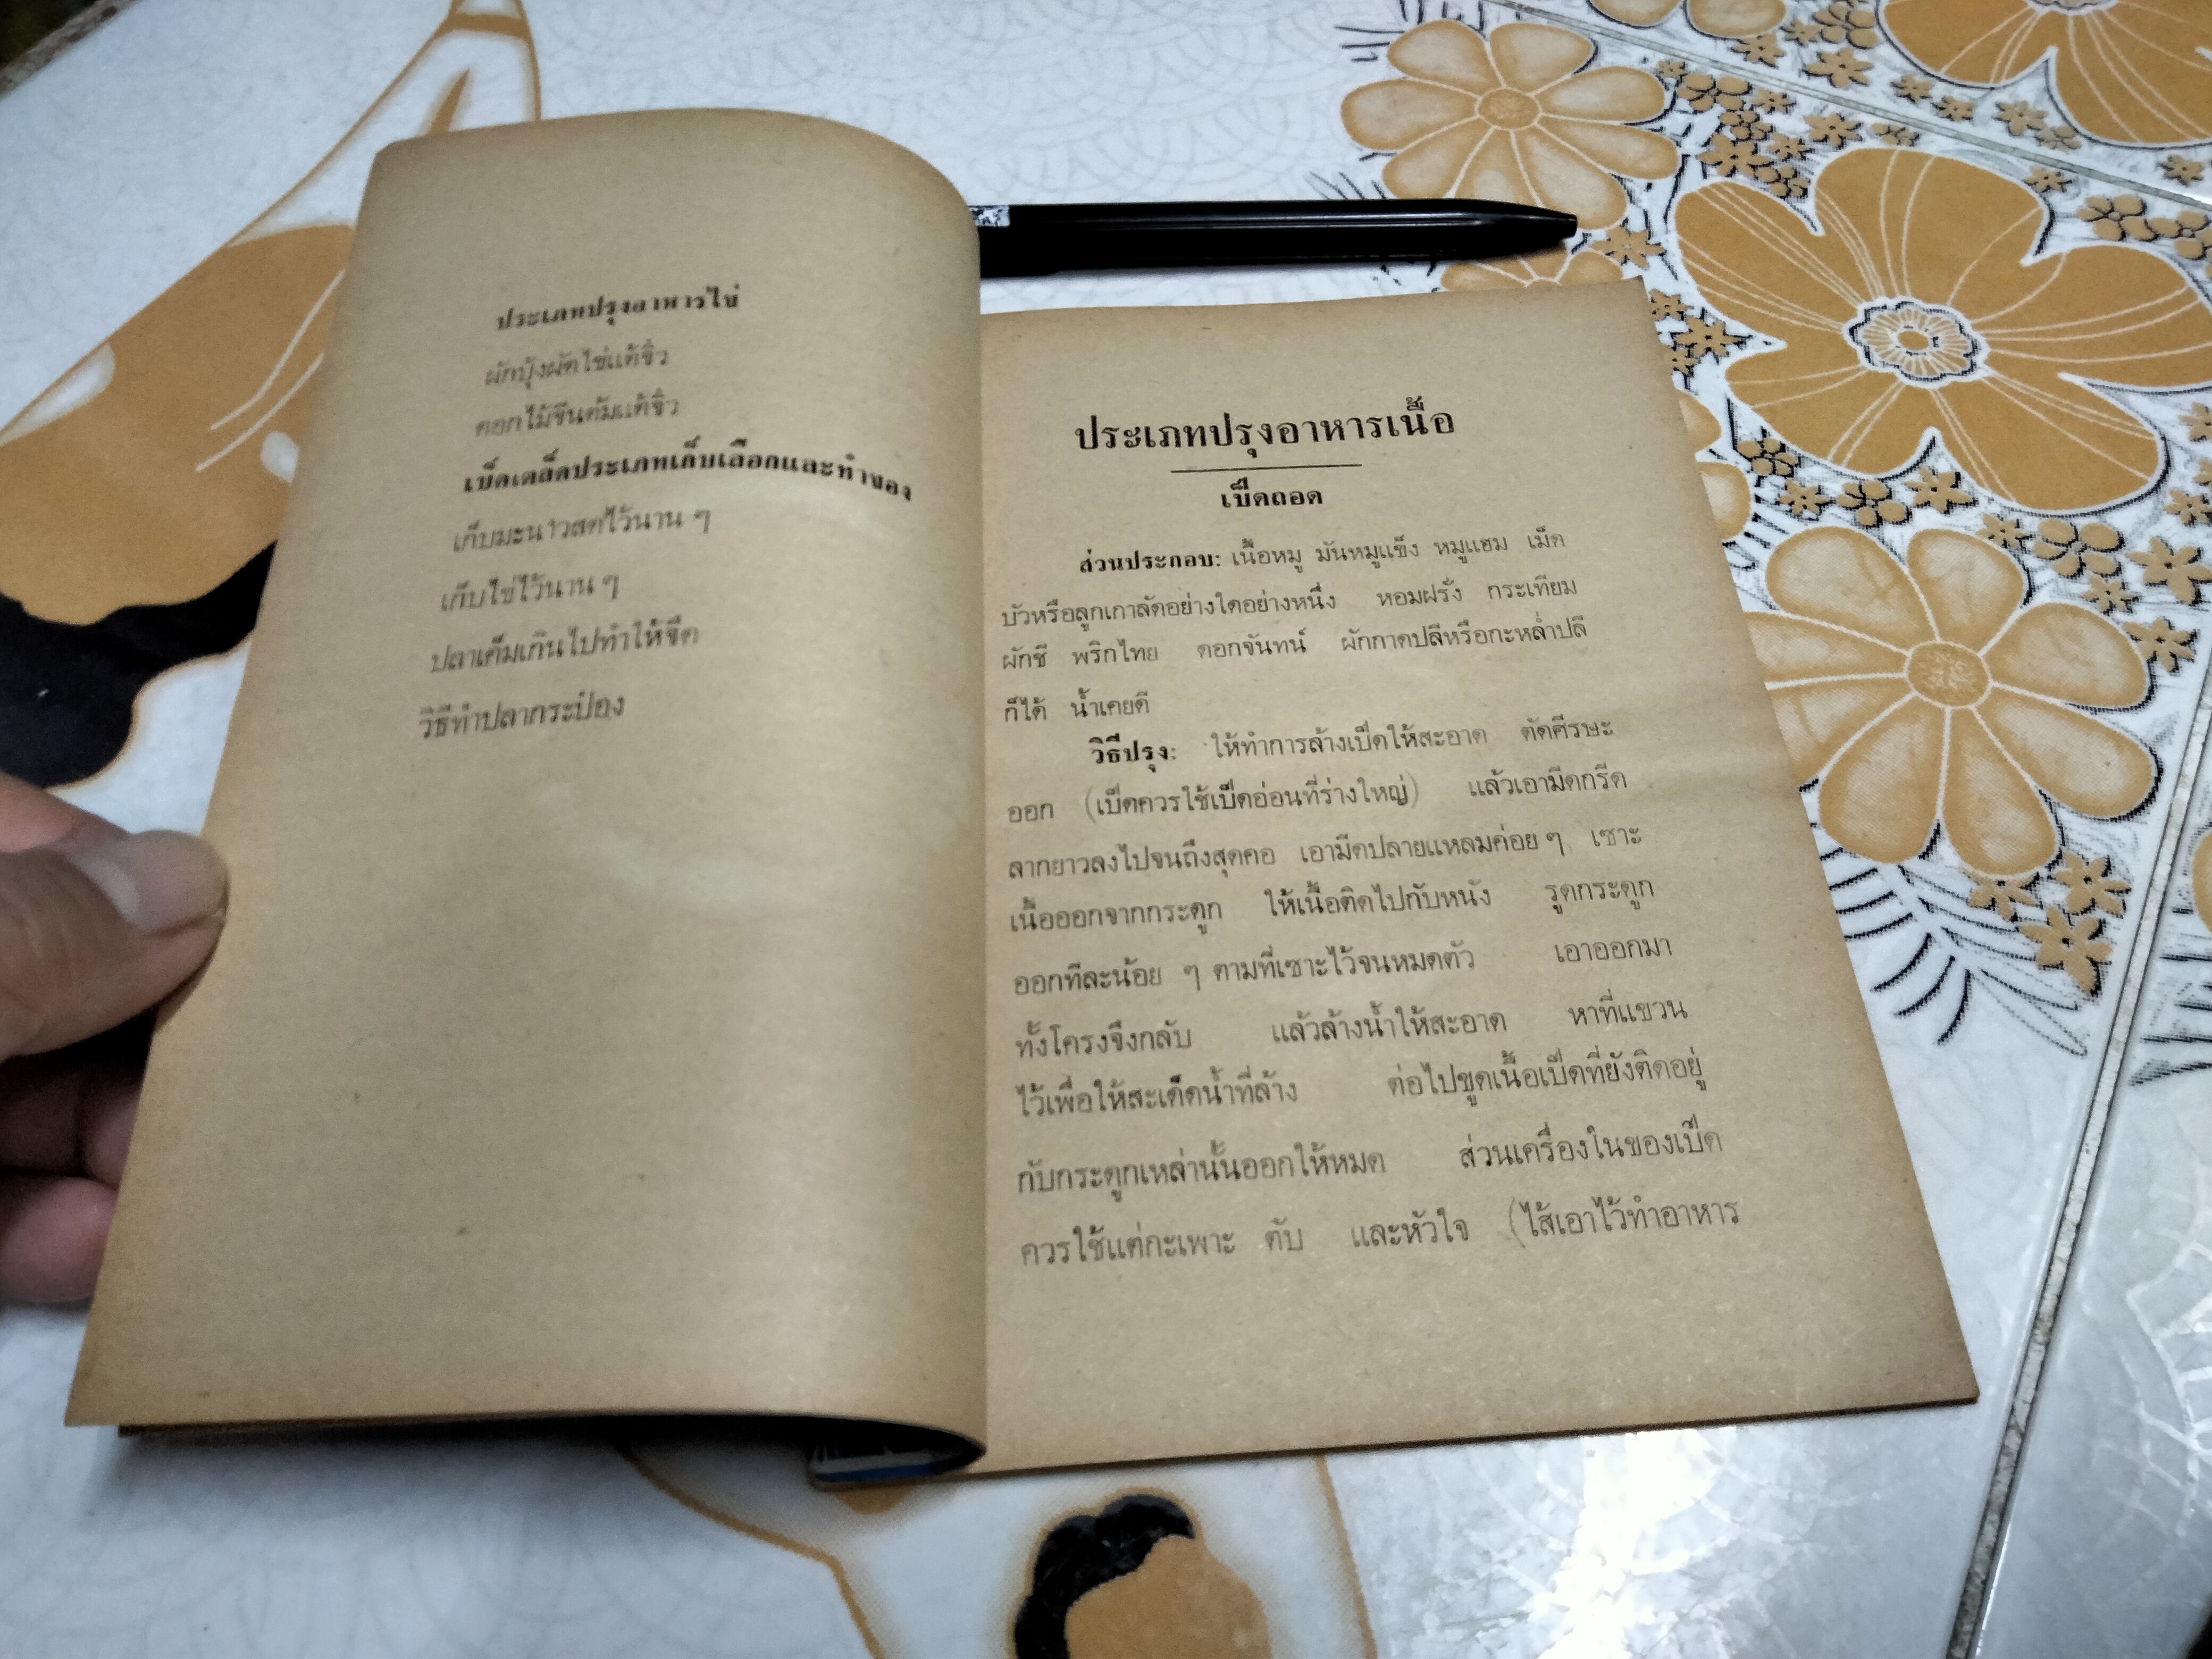 ประเภทปรุงอาหารไข่
ผักบุ้งผัดไข่แต้จิ๋ว
ดอกไม้จีนต้มแต้จิ๋ว
เบ็ดเตล็ดประเภทเก็บเลือกและทำของ
เก็บมะนาวสดไว้นาน ๆ
เก็บไข่ไว้นาน ๆ
ปลาเค็มเกินไปทำให้จืด
วิธีทำปลากระป๋อง
ประเภทปรุงอาหารเนื้อ
เป็ดถอด
ส่วนประกอบ: เนื้อหมู มันหมูแข็ง หมูแฮม เม็ด
บัวหรือลูกเกาลัดอย่างใดอย่างหนึ่ง หอมฝรั่ง กระเทียม
ผักชี พริกไทย ดอกจันทน์ ผักกาดปลีหรือกะหล่ำปลี
ก็ได้ น้ำเคยดี
วิธีปรุง: ให้ทำการล้างเป็ดให้สะอาด ตัดศีรษะ
ออก (เป็ดควรใช้เป็ดอ่อนที่ร่างใหญ่) แล้วเอามีดกรีด
ลากยาวลงไปจนถึงสุดคอ เอามีดปลายแหลมค่อย ๆ เซาะ
เนื้อออกจากกระดูก ให้เนื้อติดไปกับหนัง รูดกระดูก
ออกทีละน้อย ๆ ตามที่เซาะไว้จนหมดตัว เอาออกมา
ทั้งโครงจึงกลับ แล้วล้างน้ำให้สะอาด หาที่แขวน
ไว้เพื่อให้สะเด็ดน้ำที่ล้าง ต่อไปขูดเนื้อเป็ดที่ยังติดอยู่
กับกระดูกเหล่านั้นออกให้หมด ส่วนเครื่องในของเป็ด
ควรใช้แต่กะเพาะ ตับ และหัวใจ (ไส้เอาไว้ทำอาหาร